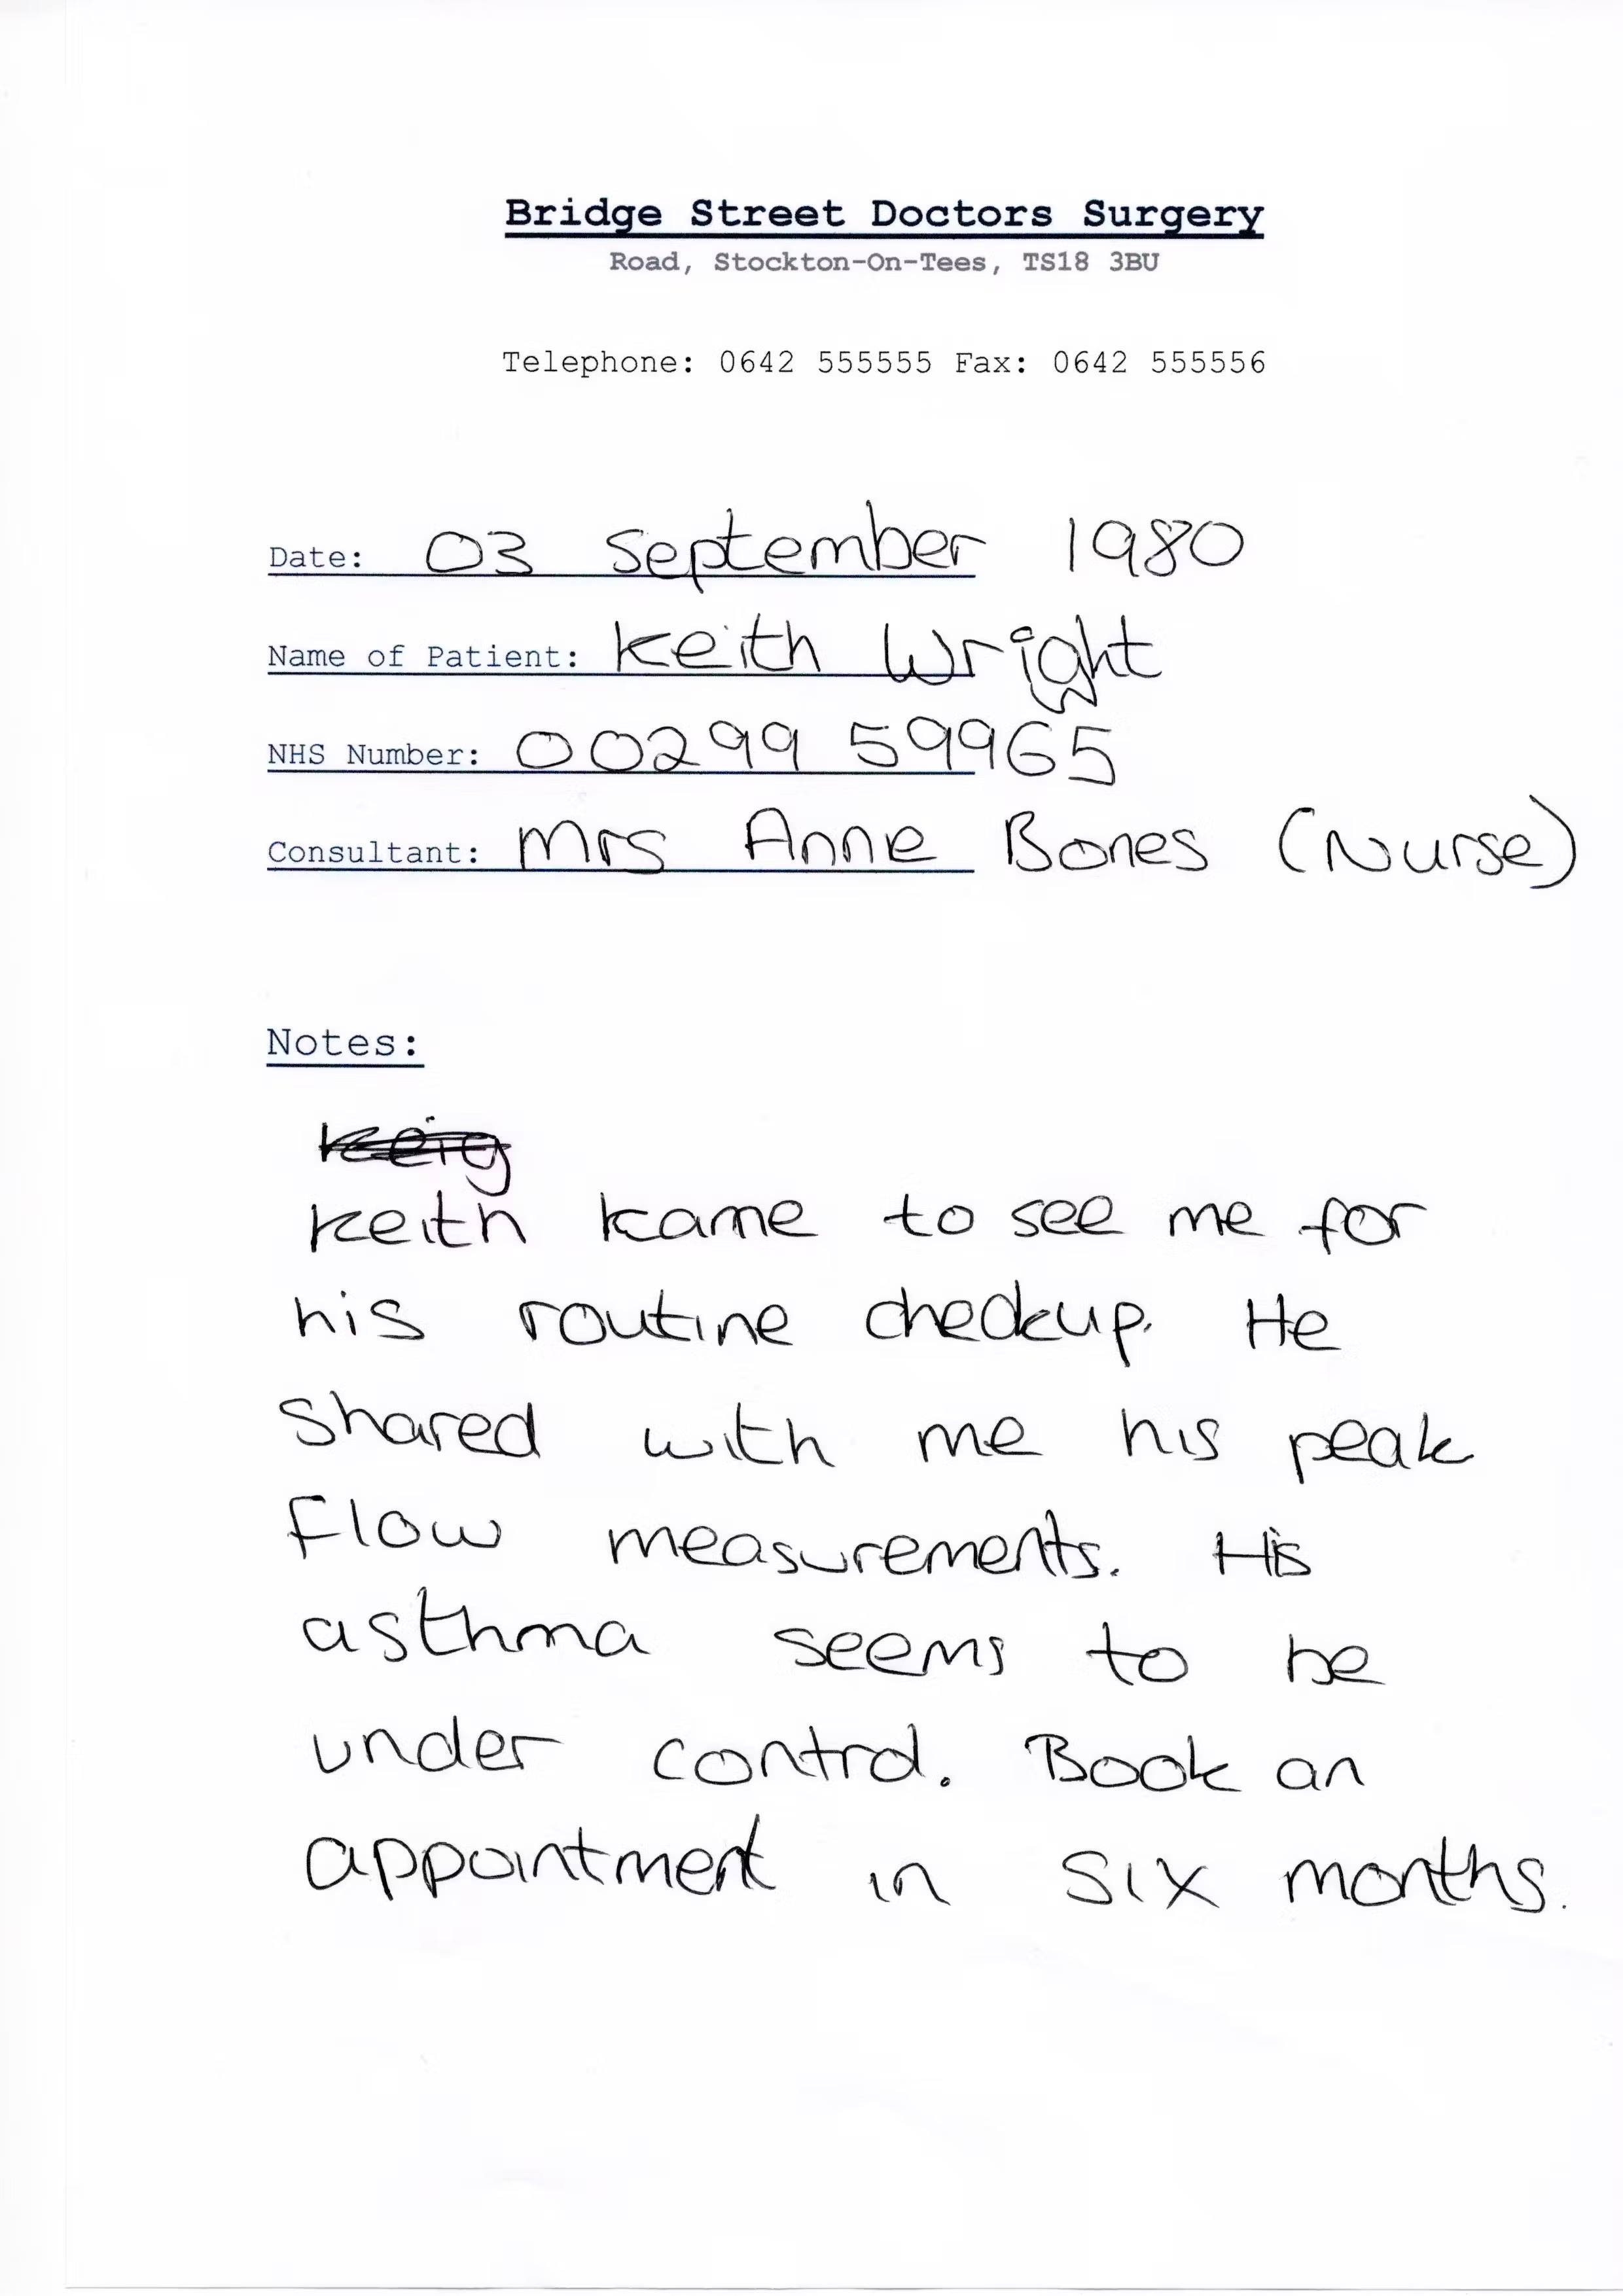 Bridge Street Doctors Surgery
Road, Stockton-On-Tees, TS18 3BU
Telephone: 0642 555555 Fax: 0642 555556
Date: 03 September 1980
Name of Patient: Keith Wright
NHS Number: 00299 59965
Consultant: Mrs Anne Bones (Nurse)
Notes:
Keith kame to see me for
his routine checkup. He
shared with me his peak
flow measurements. His
asthma seems to be
under control. Book an
appointment in six months.